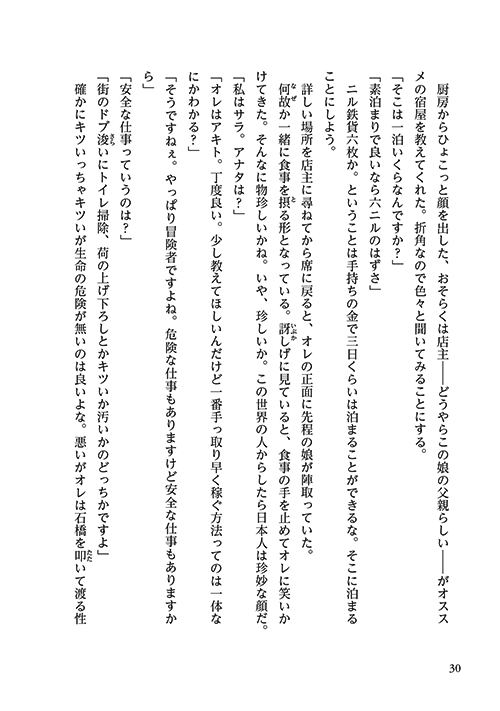 厨房からひょこっと顔を出した、おそらくは店主――どうやらこの娘の父親らしい――がオスス
メの宿屋を教えてくれた。折角なので色々と聞いてみることにする。
「そこは一泊いくらなんですか？」
「素泊まりで良いなら六ニルのはずさ」
ニル鉄貨六枚か。ということは手持ちの金で三日くらいは泊まることができるな。そこに泊まる
ことにしよう。
詳しい場所を店主に尋ねてから席に戻ると、オレの正面に先程の娘が陣取っていた。
何故か一緒に食事を摂る形となっている。訝しげに見ていると、食事の手を止めてオレに笑いか
けてきた。そんなに物珍しいかね。いや、珍しいか。この世界の人からしたら日本人は珍妙な顔だ。
「私はサラ。アナタは？」
「オレはアキト。丁度良い。少し教えてほしいんだけど一番手っ取り早く稼ぐ方法ってのは一体な
にかわかる？」
「そうですねぇ。やっぱり冒険者ですよね。危険な仕事もありますけど安全な仕事もありますか
ら」
「安全な仕事っていうのは？」
「街のドブ浚いにトイレ掃除、荷の上げ下ろしとかキツいか汚いかのどっちかですよ」
確かにキツいっちゃキツいが生命の危険が無いのは良いよな。悪いがオレは石橋を叩いて渡る性
30